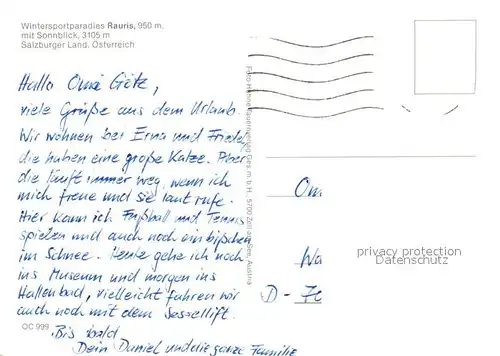 Wintersportparadies Rauris, 950 m.
mit Sonnblick, 3105 m
Salzburger Land, Österreich
Hallo Oma Götz,
viele Grüße aus dem Urlaub.
Wir wohnen bei Erna und Friedel
die haben eine große Katze. Aber
die läuft immer weg, wenn ich
mich freue und sie laut rufe.
Hier kann ich Fußball und Tennis
spielen und auch noch ein bißchen
im Schnee. Heute gehe ich noch
ins Museum und morgen ins
Hallenbad, vielleicht fahren wir
auch noch mit dem Sessellift.
Bis bald
Dein Daniel und die ganze Familie
OC 999
Ges. m. b. H., 5700 Zell am See, Austria
Om
Wa
D - 7
privacy protection
Datenschutz